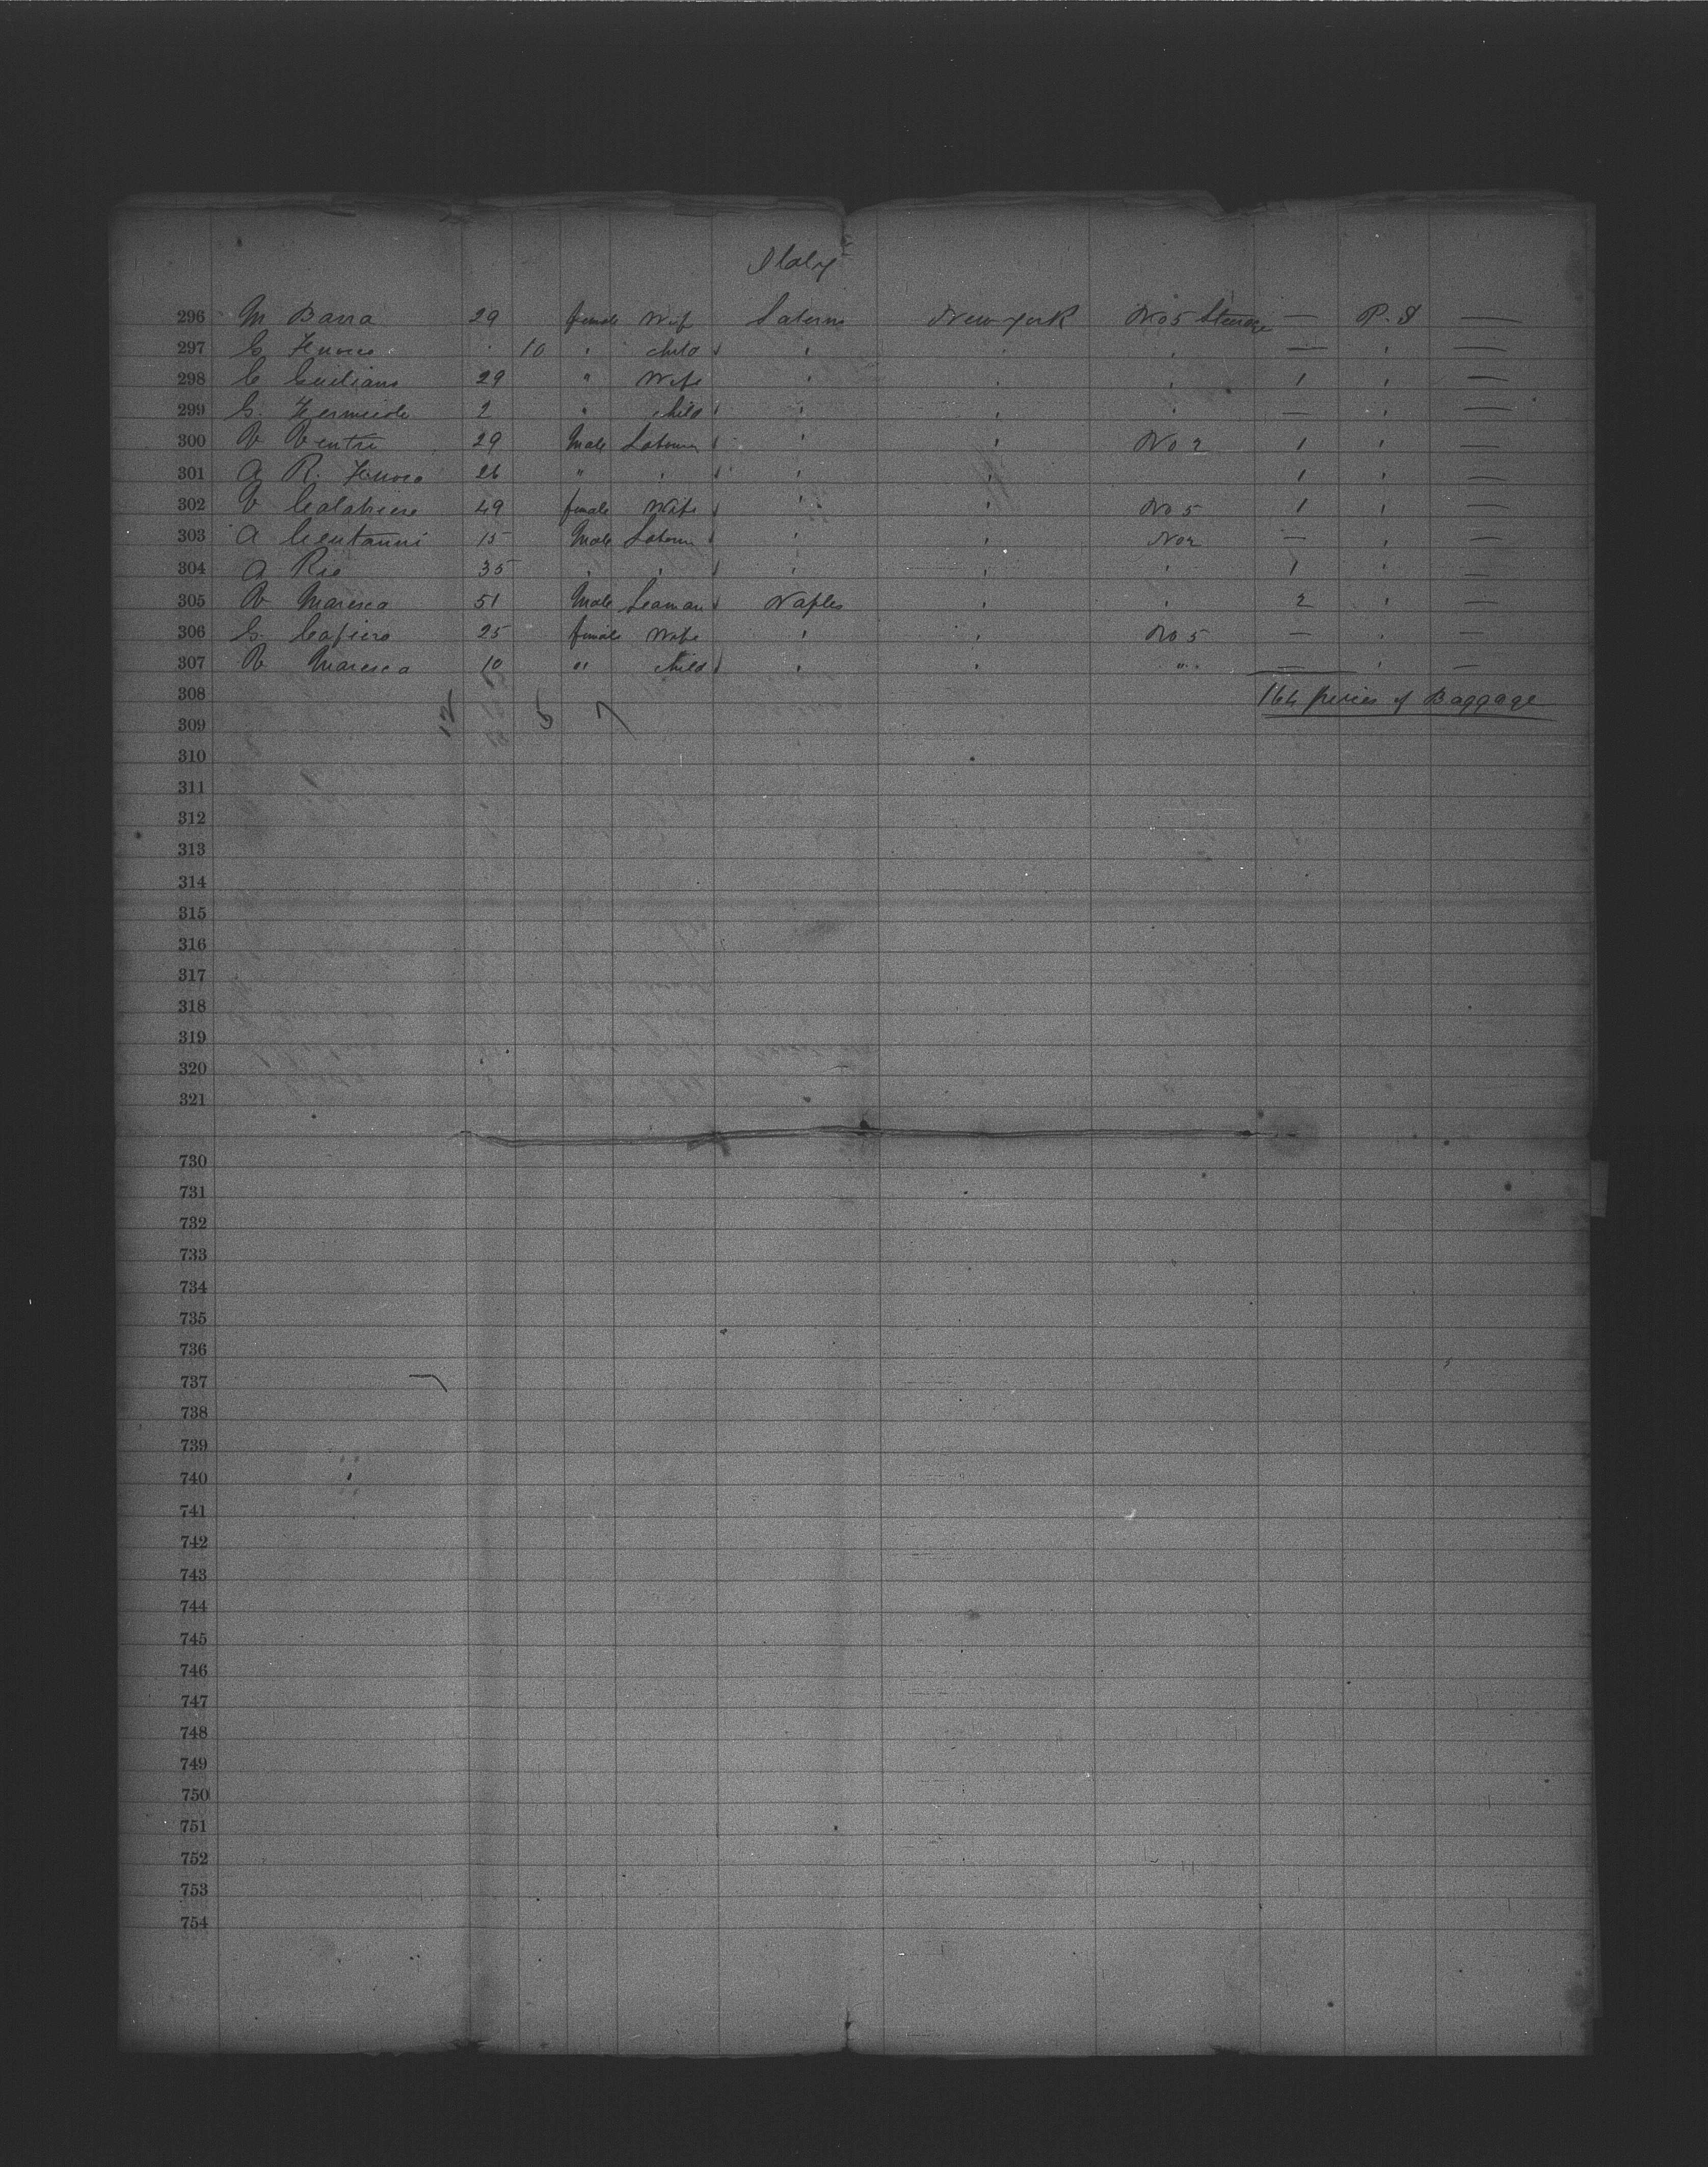 Italy
296 M Barra 29 female Wife Salerno New York No 5 Steerage — P. S —
297 10 " child " " " — " —
298 C Giuliano 29 " Wife " " " 1 " —
299 G. 2 " child " " " — " —
300 V Ventre 29 Male Labourer " " No 2 1 " —
301 A R. 26 " " " " 1 " —
302 V Calabrese 49 female Wife " " No 5 1 " —
303 A Centanni 15 Male Labourer " " No 2 — " —
304 A Rio 35 " " " " " 1 " —
305 V Maresca 51 Male Seaman Naples " " 2 " —
306 G. Cafiero 25 female Wife " " No 5 — " —
307 V Maresca 10 " child " " " — " —
308 164 pieces of Baggage
309 12 5 7
310
311
312
313
314
315
316
317
318
319
320
321
730
731
732
733
734
735
736
737
738
739
740
741
742
743
744
745
746
747
748
749
750
751
752
753
754